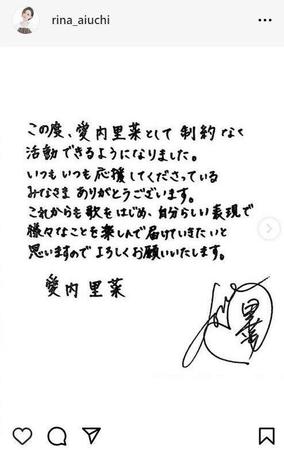 rina_aiuchi
この度、愛内里菜として 制約 なく
活動できるようになりました。
いつも いつも 応援してくださっている
みなさま ありがとうございます。
これからも歌をはじめ、自分らしい表現で
様々なことを楽しんで届けていきたいと
思いますので よろしくお願いいたします。
愛内 里菜
里菜